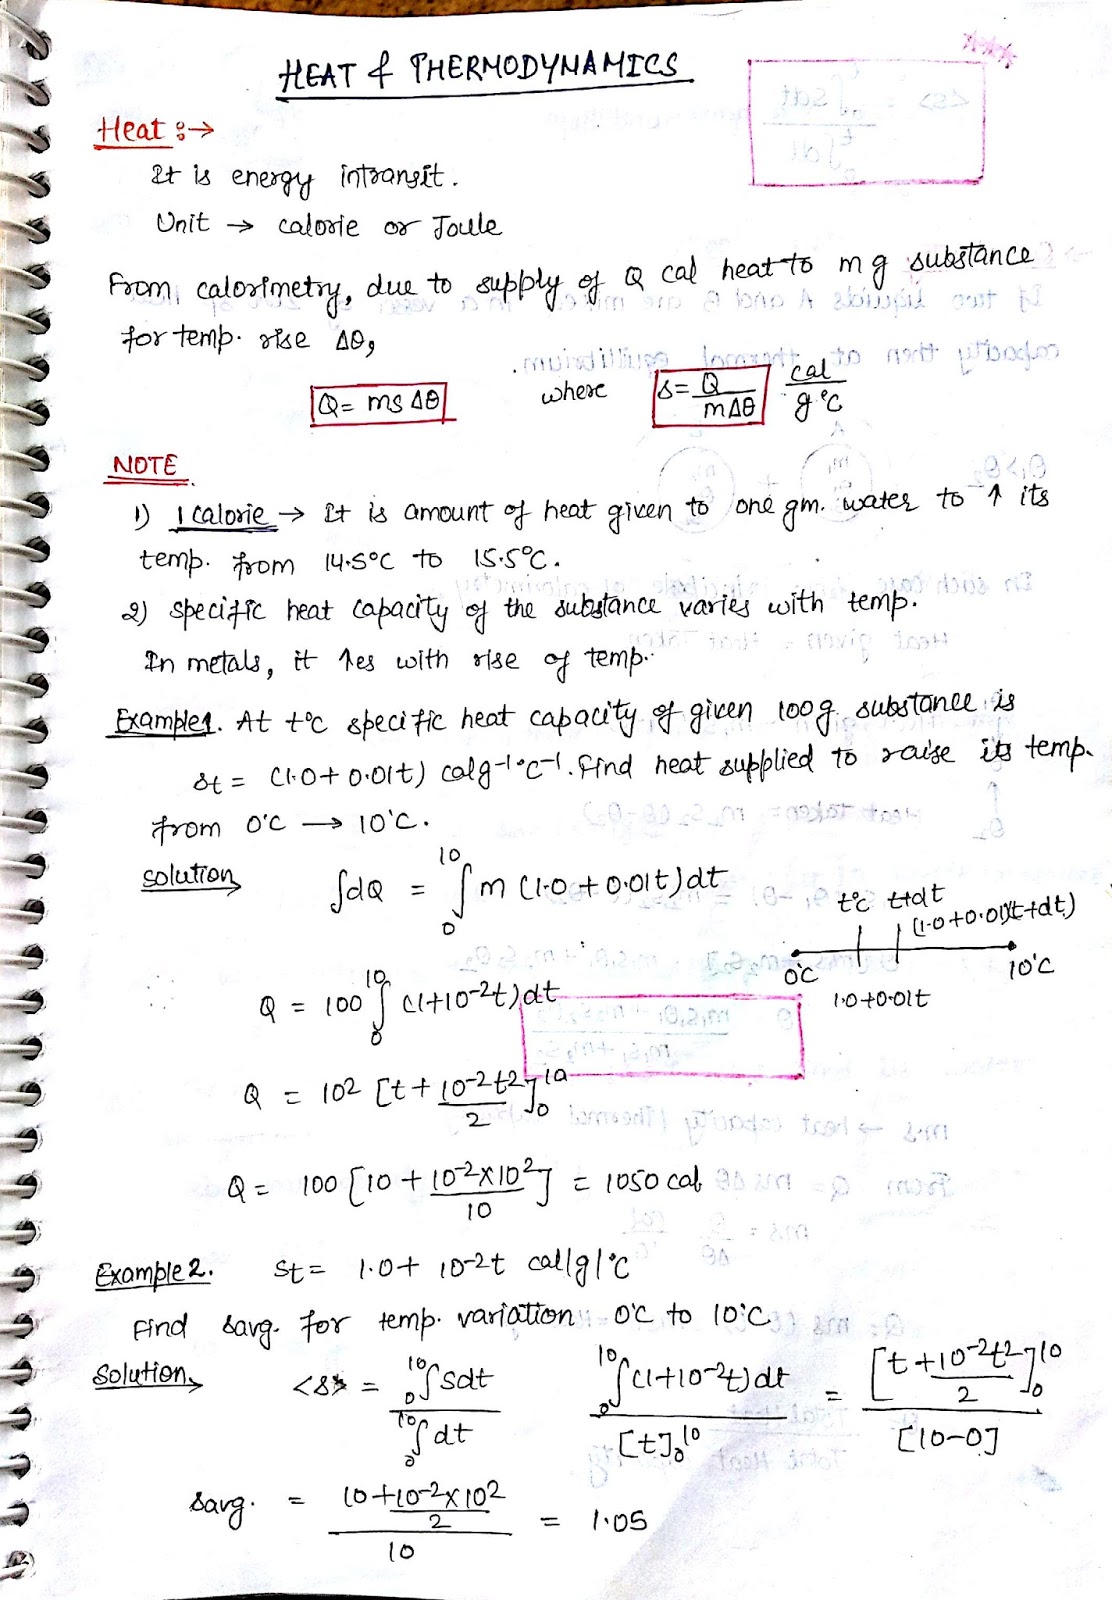 HEAT & THERMODYNAMICS
Heat :→
It is energy intransit.
Unit → calorie or Joule
From calorimetry, due to supply of Q cal heat to m g substance
for temp. rise Δθ,
Q = ms Δθ where s = Q/mΔθ cal/g °C
NOTE
1) 1 calorie → It is amount of heat given to one gm. water to ↑ its
temp. from 14.5°C to 15.5°C.
2) specific heat capacity of the substance varies with temp.
In metals, it ↑es with rise of temp.
Example1. At t°c specific heat capacity of given 100g substance is
st = (1.0 + 0.01t) calg⁻¹°C⁻¹. Find heat supplied to raise its temp.
from 0°C → 10°C.
solution ∫dQ = ₀∫¹⁰ m (1.0 + 0.01t) dt
t°c t+dt
(1.0+0.01)(t+dt)
0°C 10°C
1.0+0.01t
Q = 100 ₀∫¹⁰ (1+10⁻²t) dt
Q = 10² [t + 10⁻²t²/2]₀¹⁰
Q = 100 [10 + 10⁻²×10²/10] = 1050 cal
Example 2. st = 1.0 + 10⁻²t cal/g/°C
Find savg. for temp. variation 0°C to 10°C
Solution <s> = ₀∫¹⁰ sdt / ₀∫¹⁰ dt ₀∫¹⁰ (1+10⁻²t) dt / [t]₀¹⁰ = [t + 10⁻²t²/2]₀¹⁰ / [10-0]
savg. = 10 + 10⁻²×10²/2 / 10 = 1.05